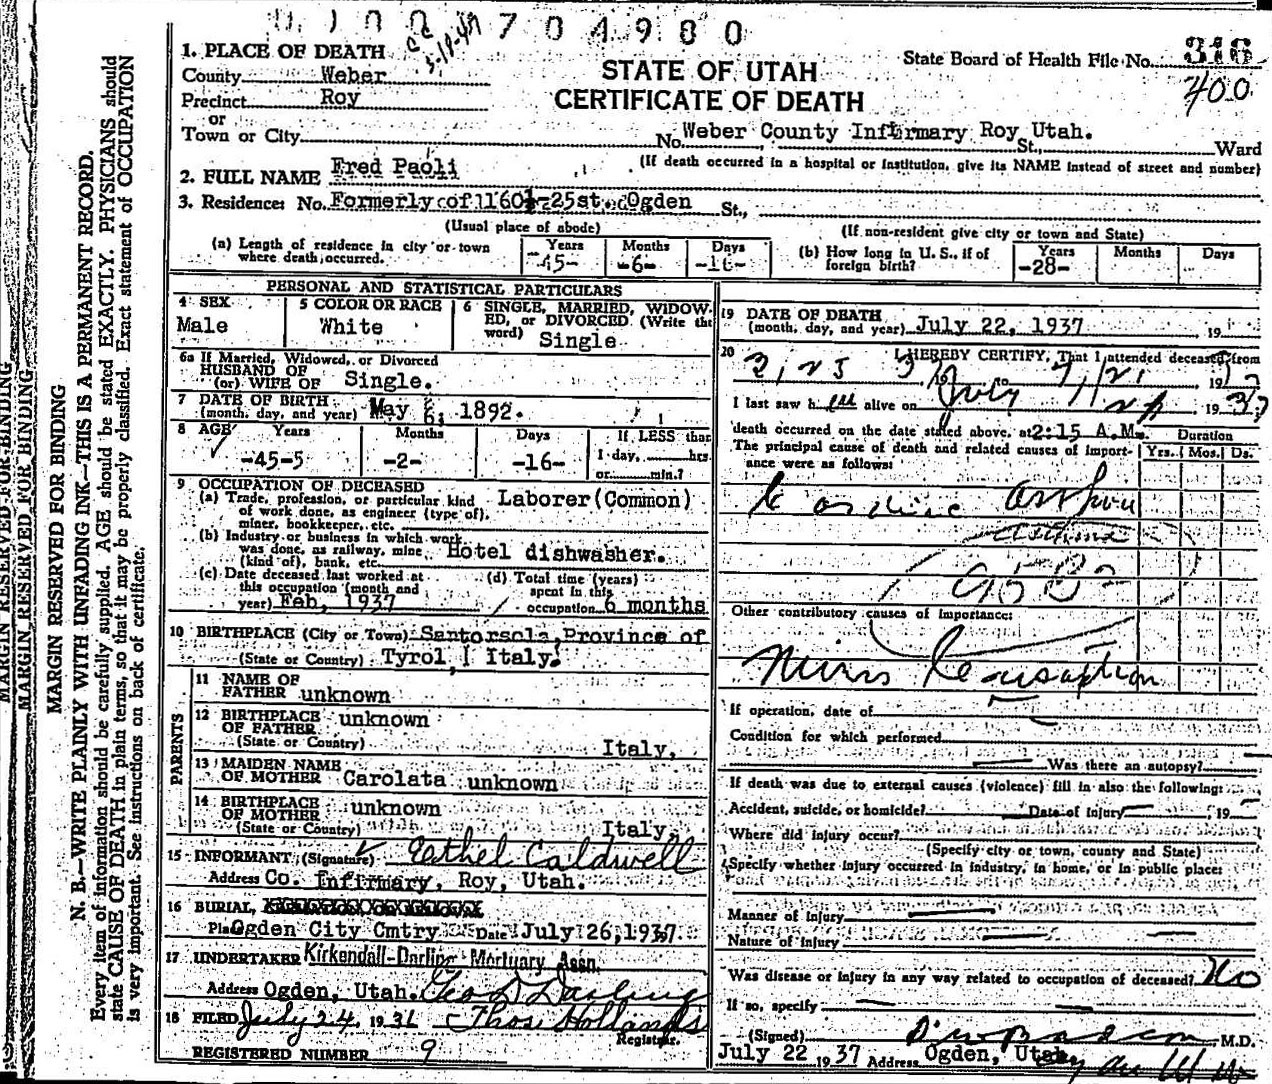 0 1 0 0 7 0 4 9 8 0
1. PLACE OF DEATH
County Weber
Precinct Roy
or
Town or City
STATE OF UTAH
CERTIFICATE OF DEATH
State Board of Health File No. 316
400
No. Weber County Infirmary Roy Utah. St., Ward
(If death occurred in a hospital or institution, give its NAME instead of street and number)
2. FULL NAME Fred Paoli
3. Residence: No. Formerly of 1160½-25st. Ogden St.,
(Usual place of abode)
(If non-resident give city or town and State)
(a) Length of residence in city or town where death occurred.
Years Months Days
-45- -6- -16-
(b) How long in U. S., if of foreign birth?
Years Months Days
-28-
PERSONAL AND STATISTICAL PARTICULARS
4 SEX
Male
5 COLOR OR RACE
White
6 SINGLE, MARRIED, WIDOWED, or DIVORCED (Write the word) Single
6a If Married, Widowed, or Divorced
HUSBAND OF
(or) WIFE OF Single.
7 DATE OF BIRTH
(month, day, and year) May 6, 1892.
8 AGE Years Months Days If LESS than
1 day, hrs.
or min.?
-45-5 -2- -16-
9 OCCUPATION OF DECEASED
(a) Trade, profession, or particular kind of work done, as engineer (type of), miner, bookkeeper, etc. Laborer (Common)
(b) Industry or business in which work was done, as railway, mine (kind of), bank, etc. Hotel dishwasher.
(c) Date deceased last worked at this occupation (month and year) Feb, 1937
(d) Total time (years) spent in this occupation 6 months
10 BIRTHPLACE (City or Town) Santorsola, Province of
(State or Country) Tyrol, Italy.
PARENTS
11 NAME OF FATHER unknown
12 BIRTHPLACE OF FATHER unknown
(State or Country) Italy,
13 MAIDEN NAME OF MOTHER Carolata unknown
14 BIRTHPLACE OF MOTHER unknown
(State or Country) Italy,
15 INFORMANT (Signature) Ethel Caldwell
Address Co. Infirmary, Roy, Utah.
16 BURIAL,
Place Ogden City Cmtry Date July 26, 1937
17 UNDERTAKER Kirkendall-Darling Mortuary Assn.
Address Ogden, Utah. Geo D Darling
18 FILED July 24, 1936 Thos Hollands
Registrar.
REGISTERED NUMBER 9
19 DATE OF DEATH
(month, day, and year) July 22, 1937 19
20 I HEREBY CERTIFY, That I attended deceased from
I last saw h alive on July 1937
death occurred on the date stated above, at 2:15 A.M.
Duration
Yrs. Mos. Ds.
The principal cause of death and related causes of importance were as follows:
Cardiac asthma
asthma
95B2
Other contributory causes of importance:
If operation, date of
Condition for which performed
Was there an autopsy?
If death was due to external causes (violence) fill in also the following:
Accident, suicide, or homicide? Date of injury 19
Where did injury occur?
(Specify city or town, county and State)
Specify whether injury occurred in industry, in home, or in public place:
Manner of injury
Nature of injury
Was disease or injury in any way related to occupation of deceased? No
If so, specify
(Signed) M.D.
July 22 1937 Address Ogden, Utah
MARGIN RESERVED FOR BINDING
MARGIN RESERVED FOR BINDING
MARGIN RESERVED FOR BINDING
N. B.—WRITE PLAINLY WITH UNFADING INK—THIS IS A PERMANENT RECORD.
Every item of information should be carefully supplied. AGE should be stated EXACTLY. PHYSICIANS should
state CAUSE OF DEATH in plain terms, so that it may be properly classified. Exact statement of OCCUPATION
is very important. See instructions on back of certificate.